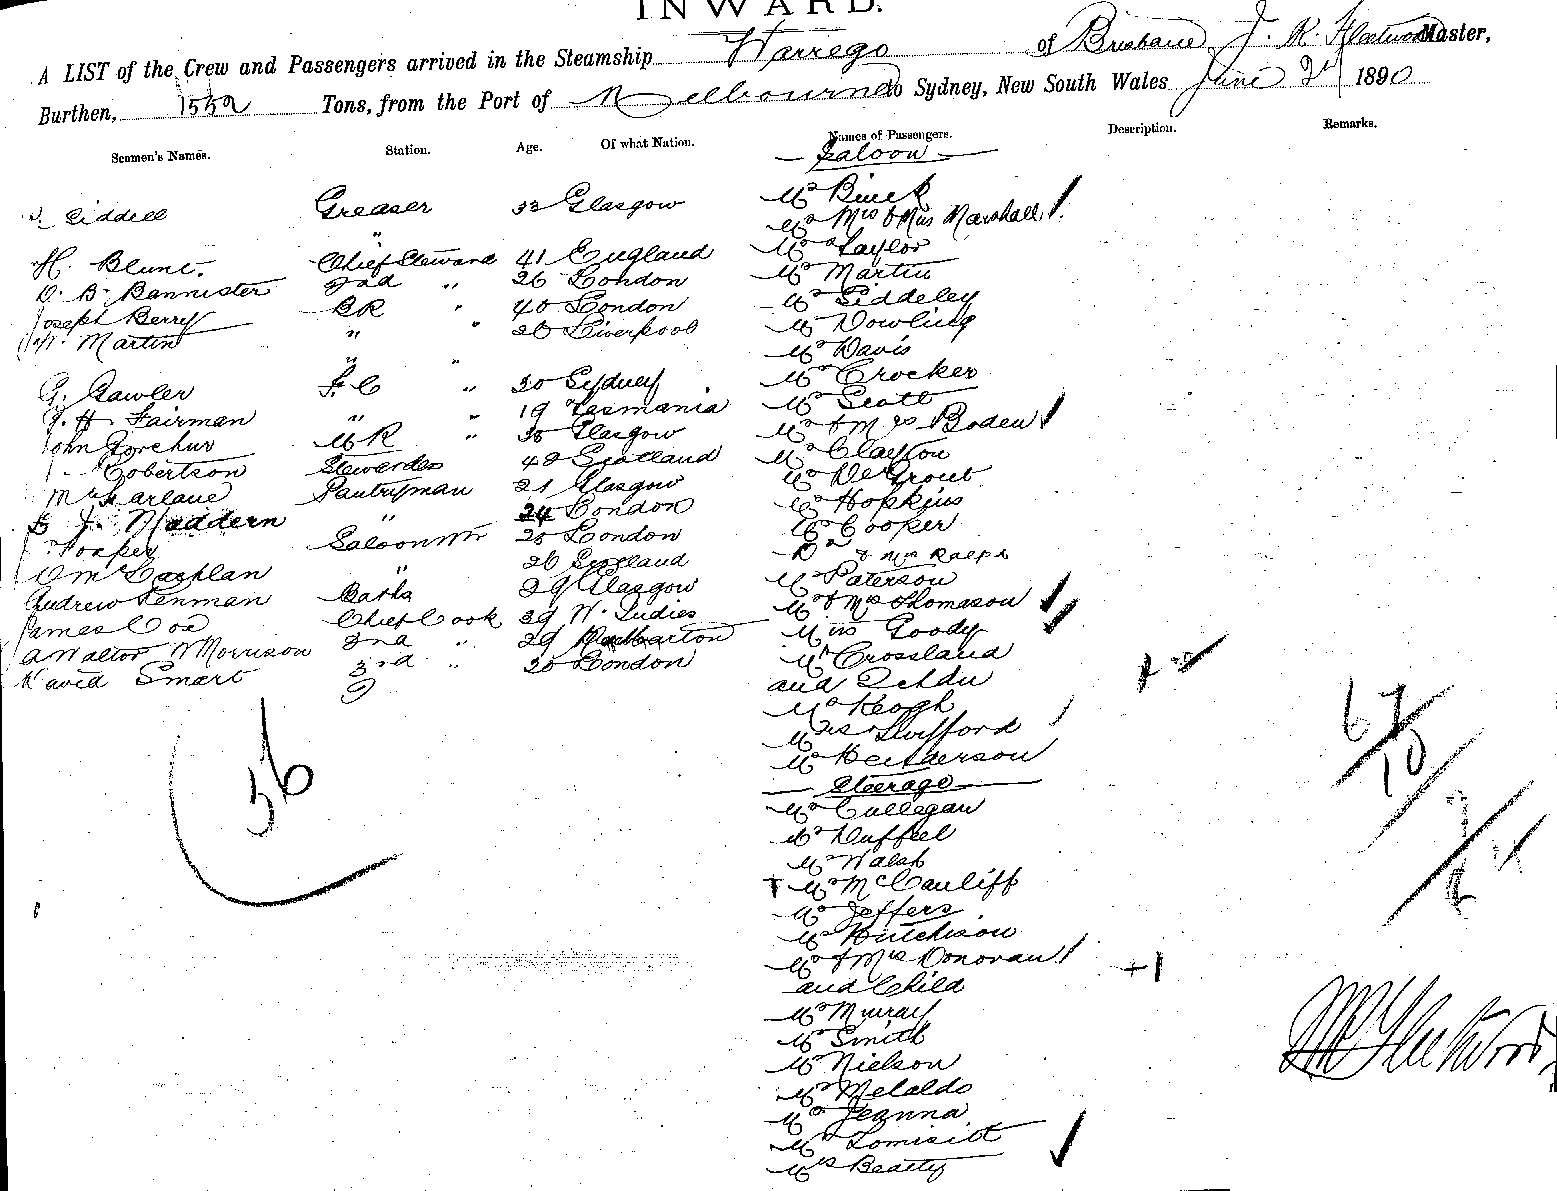 INWARD.
A LIST of the Crew and Passengers arrived in the Steamship Warrego of Brisbane, J. K. Fleetwood Master,
Burthen, 1552 Tons, from the Port of Melbourne to Sydney, New South Wales June 2nd 1890
Seamen's Names. Station. Age. Of what Nation. Names of Passengers. Description. Remarks.
Saloon
Liddell Greaser 33 Glasgow Mr
Mr Mrs & Miss Marshall
H. Blunt. Chief Steward 41 England Mr Taylor
O. B. Bannister 2nd " 26 London Mr Martin
Joseph Berry BR " 40 London Mr Siddeley
W. Martin " " 26 Liverpool Mr Dowling
" " Mr Davis
G. Gawler F.C " 20 Sydney Mr Crocker
J. H. Fairman " " 19 Tasmania Mr Scott
John MR " Glasgow Mr & Mrs Boden
Robertson Stewardess Scotland Mr Clayton
McFarlane Pantryman 21 Glasgow Mr De Grout
J. Maddern " 24 London Mr Hopkins
Saloon Wtr London Mr Cooper
D McLachlan " 26 Scotland Dr & Mrs Ralph
Andrew Penman Baths 29 Glasgow Mr Paterson
James Cox Chief Cook 39 W. Indies Mr & Mrs Thomason
A Walter Morrison 2nd " 29 Miss Goody
David Smart 3rd " 20 London Mr Crossland
and
Mr Keogh
Mrs Swifford
Mr Henderson
36
67
10
Steerage
Mr Cullegan
Mr Duffeel
Mr Walsh
Mr McCauliff
Mr Jeffers
Mr Hutchison
Mr & Mrs Donovan +1
and Child
Mr Murray
Mr Smith
Mr Nielson
Mr Melaldo
Mr Jeanna
Mr Lomisitt
Mrs Beatty
JK Fleetwood